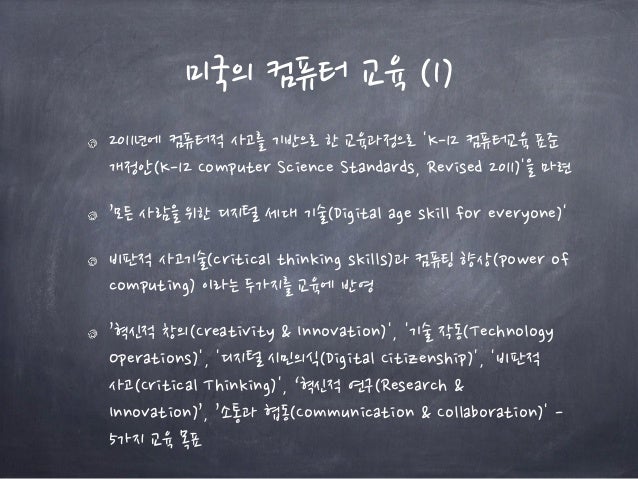 미국의 컴퓨터 교육 (1)
2011년에 컴퓨터적 사고를 기반으로 한 교육과정으로 'K-12 컴퓨터교육 표준
개정안(K-12 Computer Science Standards, Revised 2011)'을 마련
'모든 사람을 위한 디지털 세대 기술(Digital age skill for everyone)'
비판적 사고기술(critical thinking skills)과 컴퓨팅 향상(power of
computing) 이라는 두가지를 교육에 반영
'혁신적 창의(Creativity & Innovation)', '기술 작동(Technology
Operations)', '디지털 시민의식(Digital Citizenship)', '비판적
사고(Critical Thinking)', '혁신적 연구(Research &
Innovation)', '소통과 협동(Communication & Collaboration)' -
5가지 교육 목표